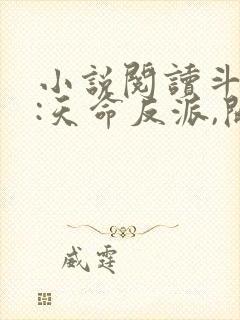 小說閱讀斗
:天命反派,開
威霆